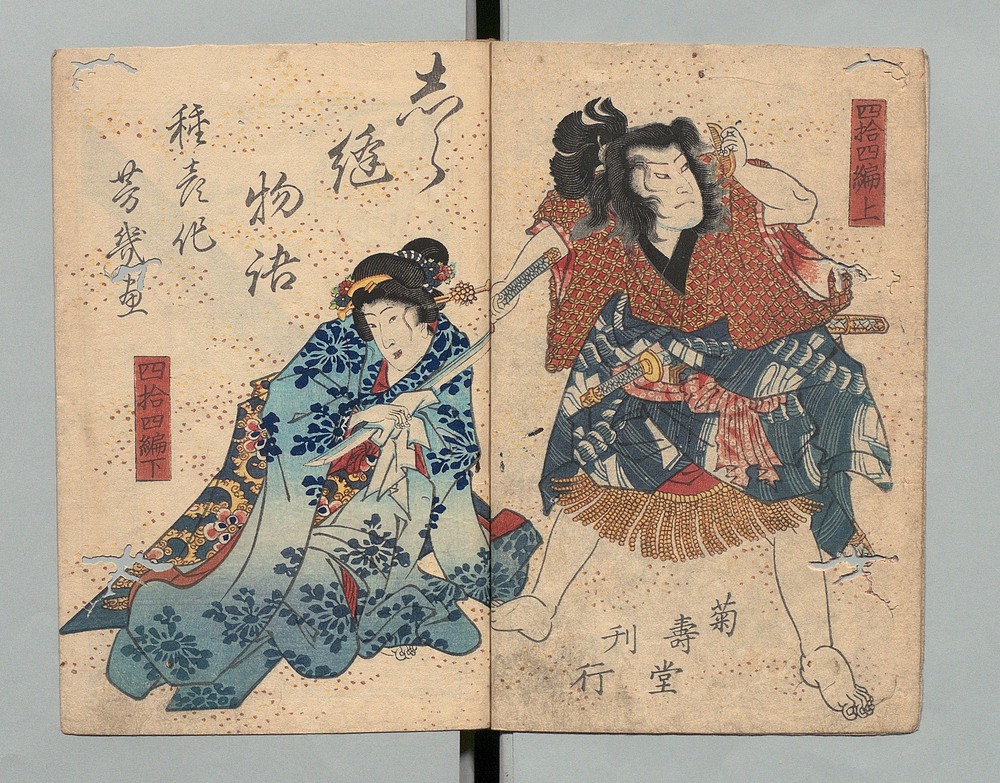 四拾四編上
菊壽堂
刊行
志ら縫物語
種彦作
芳幾畫
四拾四編下